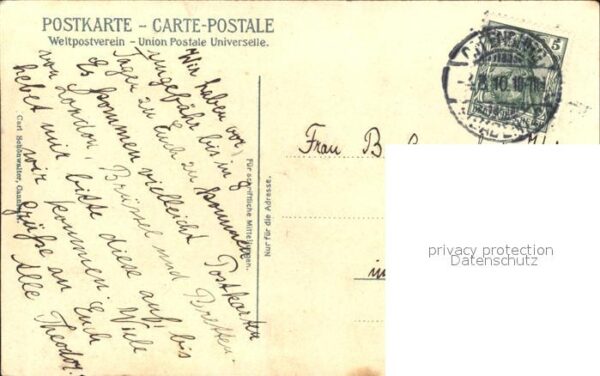 POSTKARTE – CARTE-POSTALE
Weltpostverein – Union Postale Universelle.
Wir haben vor,
ungefähr bis in 8
Tagen zu Euch zu kommen
Es kommen vielleicht Postkarten
von London, Brüssel und Bretten.
hebet mir bitte diese auf, bis
wir kommen. Viele
Grüße an Euch
Alle Theodor.
Carl Schönwalter,
Für schriftliche Mitteilungen.
Nur für die Adresse.
Frau B
in
5
10
privacy protection
Datenschutz